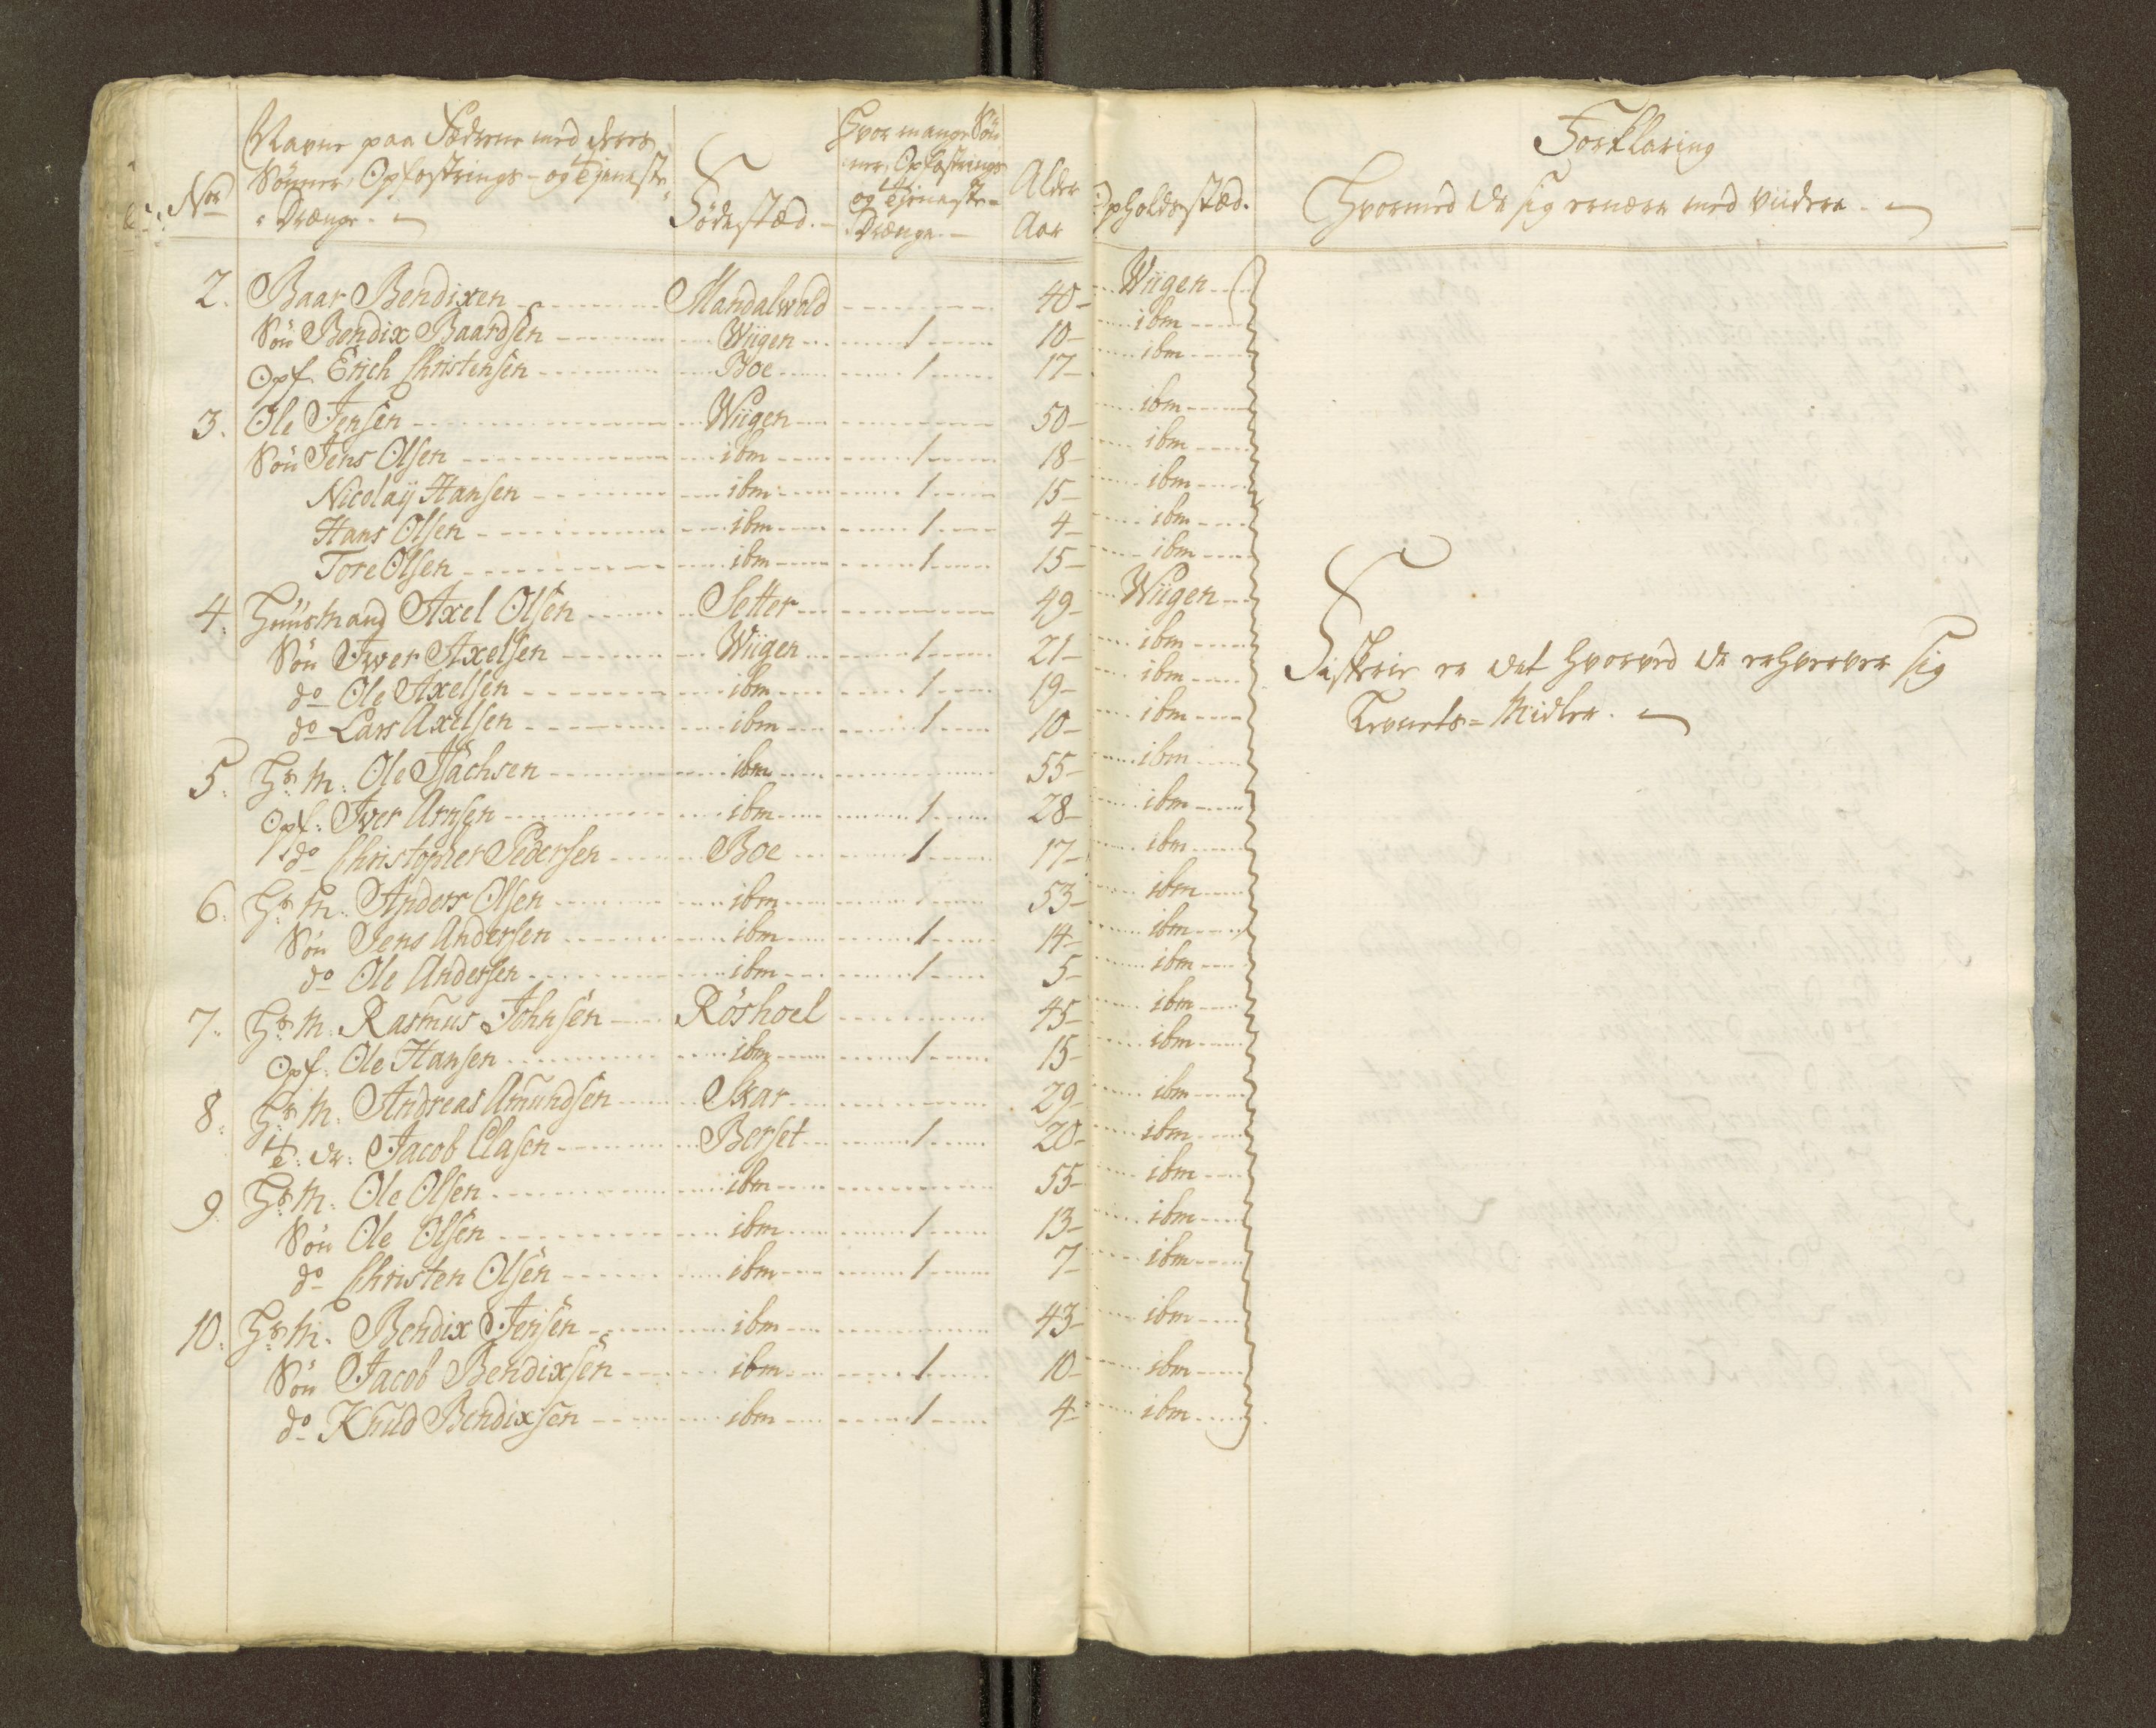 Nor
Navne paa Fædrene med deres
Sönner, Opfostrings- og Tjeneste
Drænge.
Födestæd.
Hvor mange Sön
ner, Opfostrings
og Tjeneste-
Drænge.
Alder
Aar
Opholdsstæd.
Forklaring
Hvormed de sig ernære med viidere.
2. Baar Bendixen Mandalwold 40 Wiigen
Sön Bendix Baardsen Wiigen 1 10 ibm
Opf. Erich Christensen Boe 1 17 ibm
3. Ole Jensen Wiigen 50 ibm
Sön Jens Olsen ibm 1 18 ibm
Nicolaij Hansen ibm 1 15 ibm
Hans Olsen ibm 1 4 ibm
Tore Olsen ibm 1 15 ibm
4. Huusmand Axel Olsen Setter 49 Wiigen
Sön Iwer Axelsen Wiigen 1 21 ibm
do Ole Axelsen ibm 1 19 ibm
do Lars Axelsen ibm 1 10 ibm
5. Hs: M: Ole Isachsen ibm 55 ibm
Opf: Iver Arnsen ibm 1 28 ibm
do Christopher Pedersen Boe 1 17 ibm
6. Hs: M: Anders Olsen ibm 53 ibm
Sön Jens Andersen ibm 1 14 ibm
do Ole Andersen ibm 1 5 ibm
7. Hs: M: Rasmus Johnsen Röshoel 45 ibm
Opf: Ole Hansen ibm 1 15 ibm
8. Hs: M: Andreas Amundsen Skar 29 ibm
Te: Dr: Jacob Clasen Berset 1 20 ibm
9. Hs: M: Ole Olsen ibm 55 ibm
Sön Ole Olsen ibm 1 13 ibm
do Christen Olsen ibm 1 7 ibm
10. Hs: M: Bendix Jensen ibm 43 ibm
Sön Jacob Bendixsen ibm 1 10 ibm
do Knud Bendixsen ibm 1 4 ibm
Fiskerie er det hvorved de erhverver sig
Levnets-Midler.